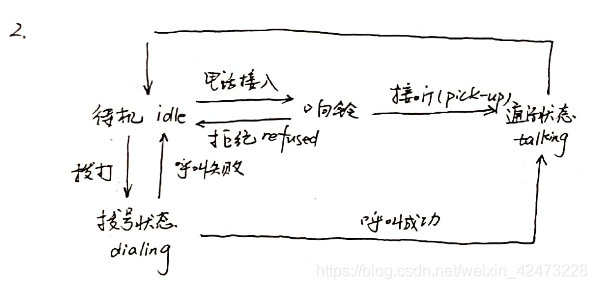 2.
电话接入
待机 idle
响铃
接听(pick-up)
通话状态
talking
拒绝 refused
拨打
呼叫失败
拨号状态
dialing
呼叫成功
https://blog.csdn.net/weixin_42473228